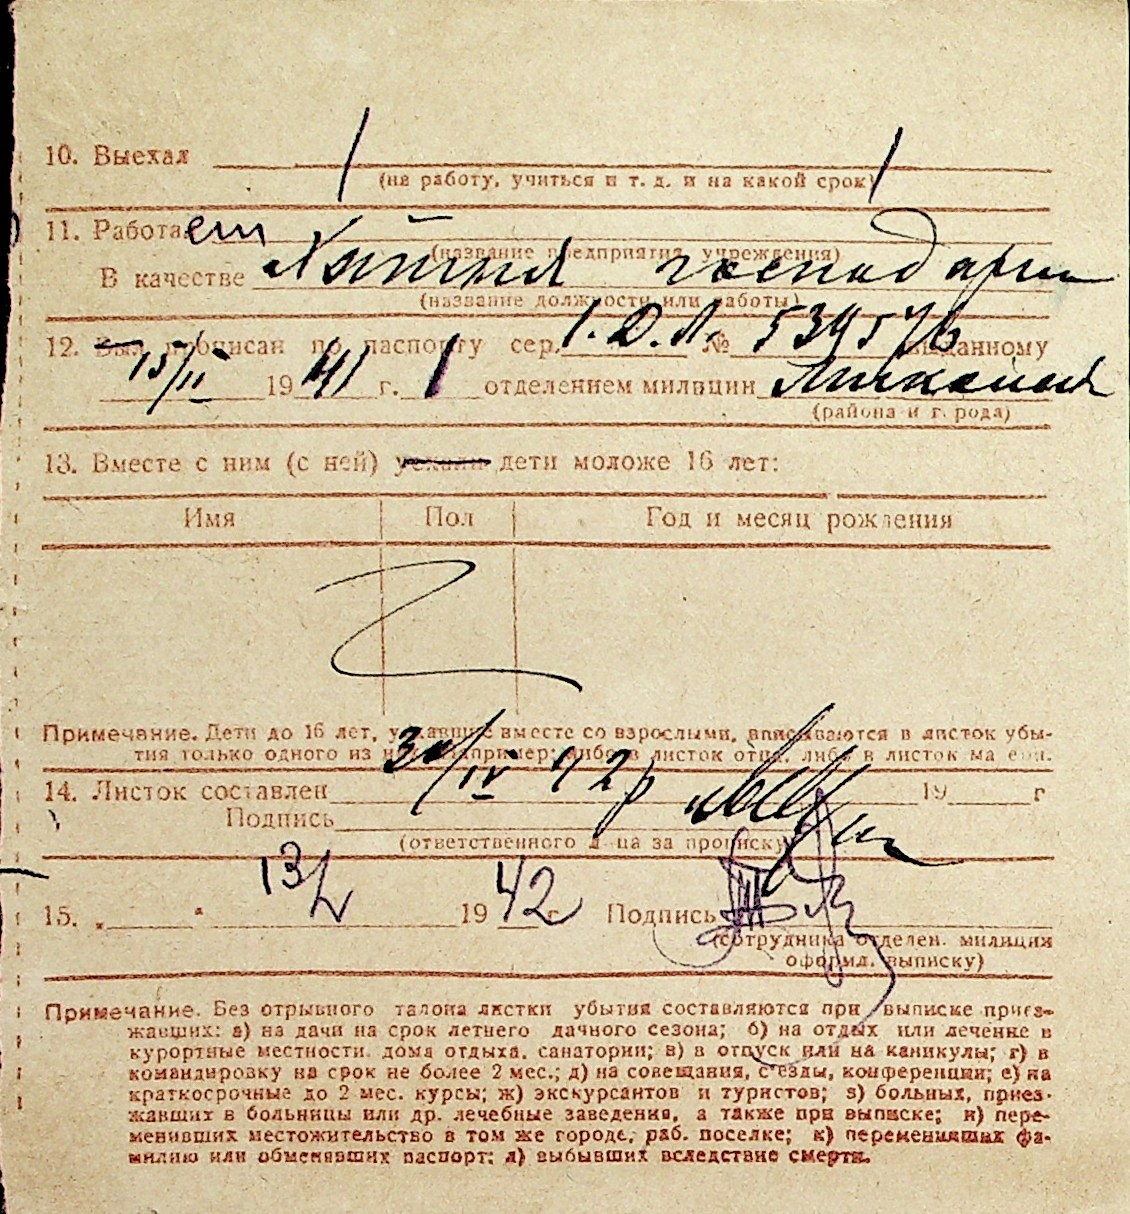 10. Выехал
(на работу, учиться и т. д. и на какой срок)
11. Работает
(название предприятия, учреждения)
В качестве господарки
(название должности или работы)
12. Был прописан по паспорту сер. № 539576 выданному
15/II 1941 г. 1 отделением милиции
(района и города)
13. Вместе с ним (с ней) уехали дети моложе 16 лет:
Имя Пол Год и месяц рождения
Примечание. Дети до 16 лет, уехавшие вместе со взрослыми, вписываются в листок убы-
тия только одного из них (например: либо в листок отца, либо в листок матери.
30/IV 42 р
14. Листок составлен 19 г
Подпись
(ответственного лица за прописку)
15. „ “ 13/V 1942 г. Подпись
(сотрудника отделен. милиции
оформл. выписку)
Примечание. Без отрывного талона листки убытия составляются при выписке приез-
жавших: а) на дачи на срок летнего дачного сезона; б) на отдых или лечение в
курортные местности, дома отдыха, санатории; в) в отпуск или на каникулы; г) в
командировку на срок не более 2 мес.; д) на совещания, съезды, конференции; е) на
краткосрочные до 2 мес. курсы; ж) экскурсантов и туристов; з) больных, приез-
жавших в больницы или др. лечебные заведения, а также при выписке; и) пере-
менивших местожительство в том же городе, раб. поселке; к) переменивших фа-
милию или обменявших паспорт; л) выбывших вследствие смерти.